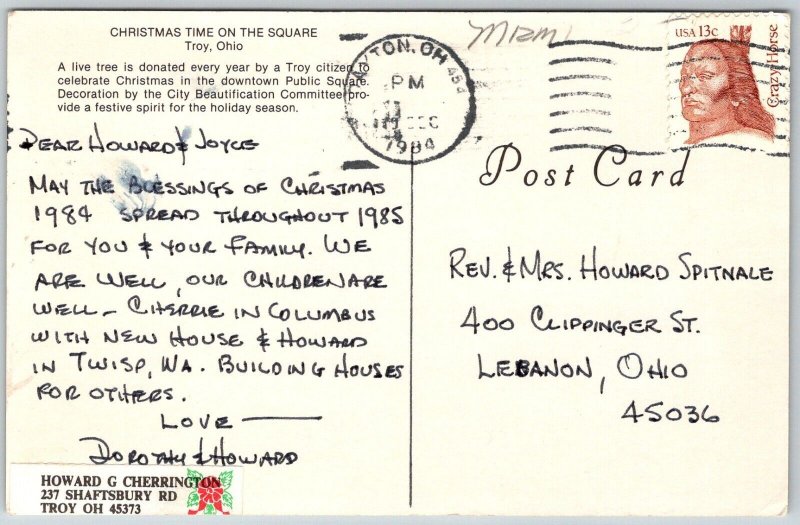 CHRISTMAS TIME ON THE SQUARE
Troy, Ohio
A live tree is donated every year by a Troy citizen to
celebrate Christmas in the downtown Public Square.
Decoration by the City Beautification Committee pro-
vide a festive spirit for the holiday season.
DAYTON, OH 454
PM
DEC
1984
MIAMI
USA 13c
Crazy Horse
Post Card
DEAR HOWARD & JOYCE
MAY THE BLESSINGS OF CHRISTMAS
1984 SPREAD THROUGHOUT 1985
FOR YOU & YOUR FAMILY. WE
ARE WELL, OUR CHILDREN ARE
WELL - CHERRIE IN COLUMBUS
WITH NEW HOUSE & HOWARD
IN TWISP, WA. BUILDING HOUSES
FOR OTHERS.
LOVE —
DOROTHY & HOWARD
REV. & MRS. HOWARD SPITNALE
400 CLIPPINGER ST.
LEBANON, OHIO
45036
HOWARD G CHERRINGTON
237 SHAFTSBURY RD
TROY OH 45373